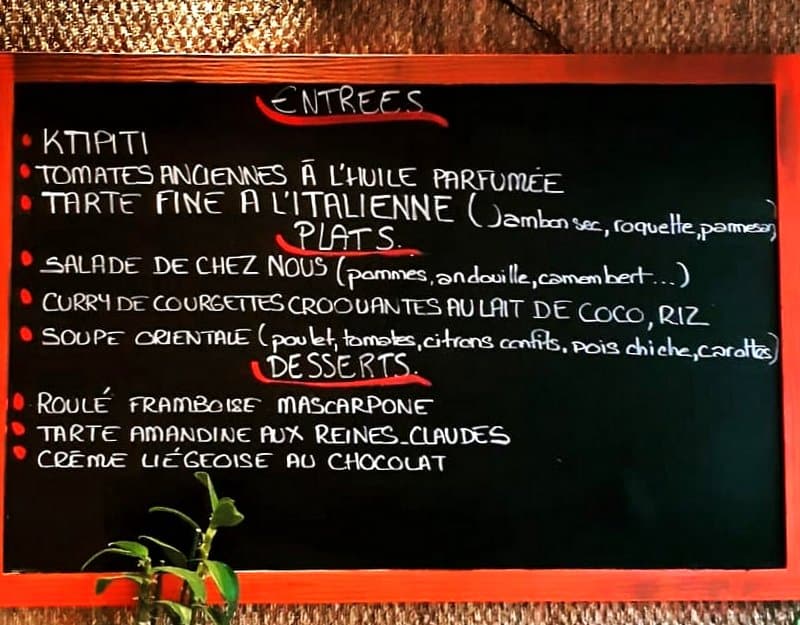 ENTREES
KTIPITI
TOMATES ANCIENNES À L'HUILE PARFUMÉE
TARTE FINE A L'ITALIENNE (Jambon sec, roquette, parmesan)
PLATS.
SALADE DE CHEZ NOUS (pommes, andouille, camembert...)
CURRY DE COURGETTES CROQUANTES AU LAIT DE COCO, RIZ
SOUPE ORIENTALE (poulet, tomates, citrons confits, pois chiche, carottes)
DESSERTS.
ROULÉ FRAMBOISE MASCARPONE
TARTE AMANDINE AUX REINES-CLAUDES
CRÈME LIÉGEOISE AU CHOCOLAT